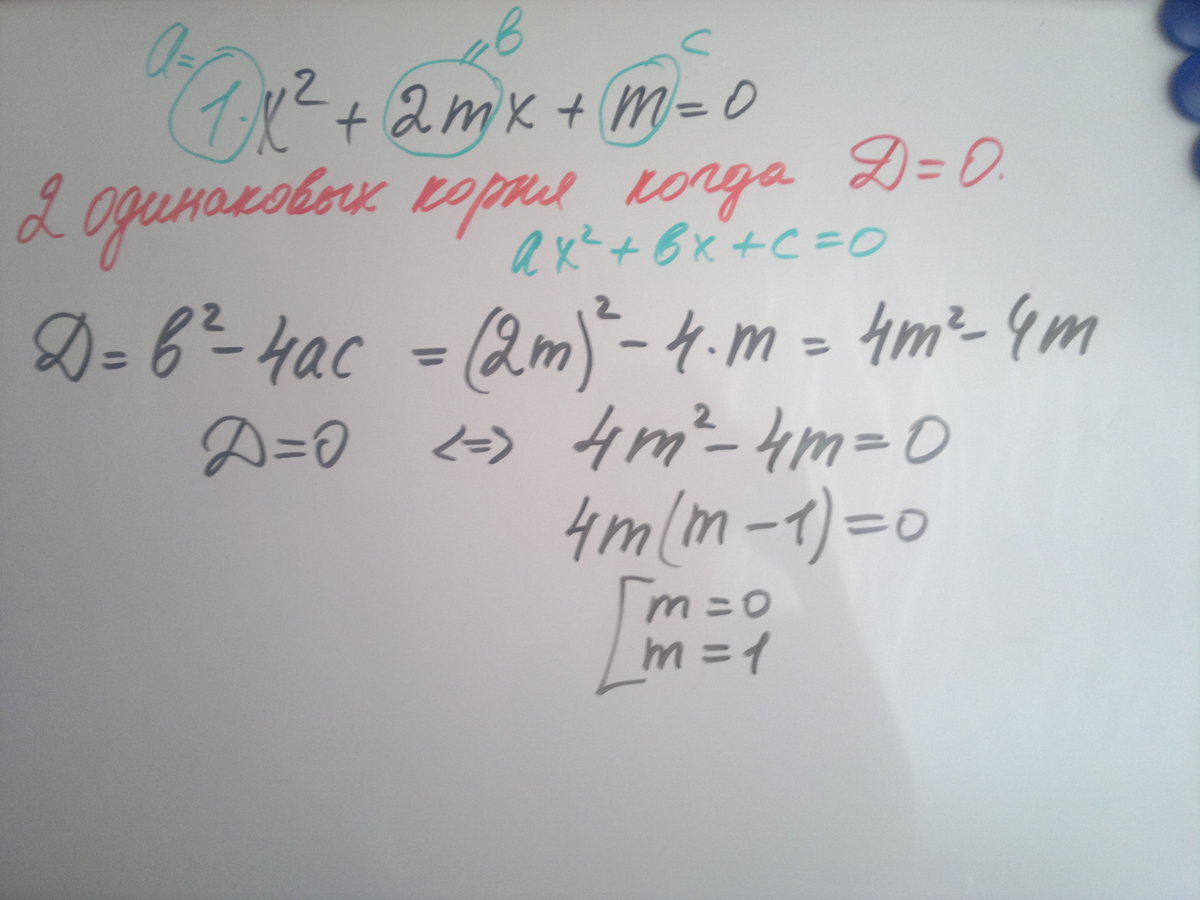 a= b c
1·x² + 2mx + m = 0
2 одинаковых корня когда D = 0.
ax² + bx + c = 0
D = b² - 4ac = (2m)² - 4·m = 4m² - 4m
D = 0 <=> 4m² - 4m = 0
4m(m - 1) = 0
[ m = 0
m = 1